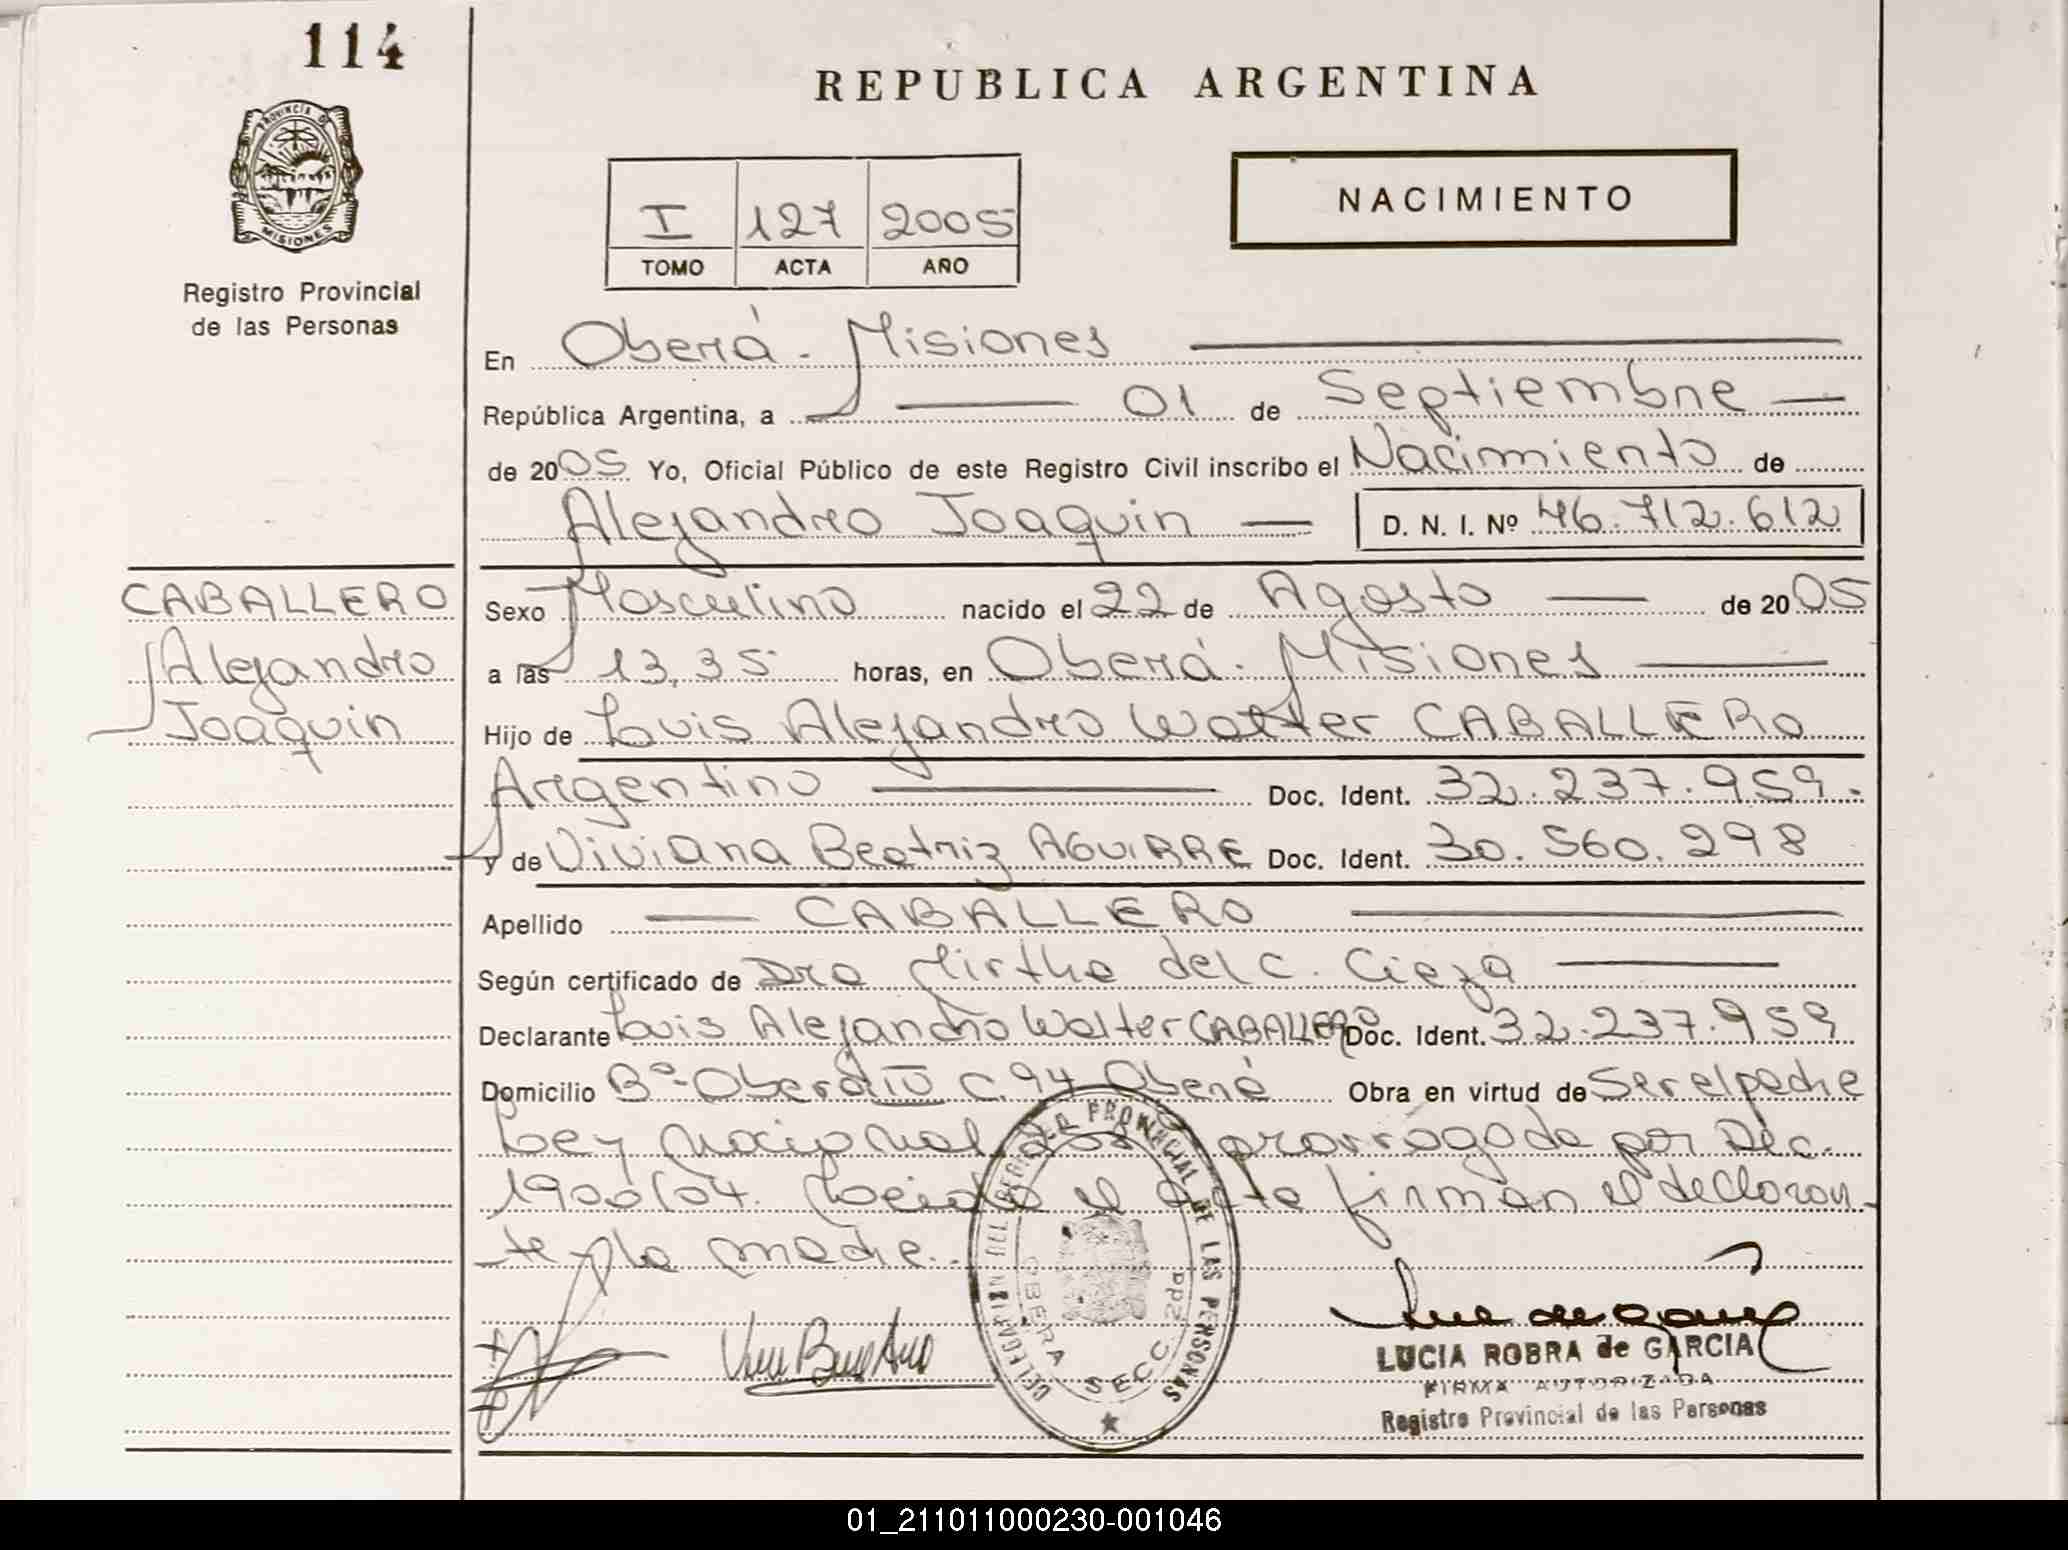 114
PROVINCIA DE
MISIONES
Registro Provincial
de las Personas
REPUBLICA ARGENTINA
I 127 2005
TOMO ACTA AÑO
NACIMIENTO
En Oberá - Misiones
República Argentina, a 01 de Septiembre
de 2005 Yo, Oficial Público de este Registro Civil inscribo el Nacimiento de
Alejandro Joaquin D. N. I. Nº 46.712.612
CABALLERO
Alejandro
Joaquin
Sexo Masculino nacido el 22 de Agosto de 2005
a las 13,35 horas, en Oberá - Misiones
Hijo de Luis Alejandro Walter CABALLERO
Argentino Doc. Ident. 32.237.959.
y de Viviana Beatriz AGUIRRE Doc. Ident. 30.560.298
Apellido CABALLERO
Según certificado de Dra Mirtha del C. Cieza
Declarante Luis Alejandro Walter CABALLERO Doc. Ident. 32.237.959
Domicilio Bº Oberá IV C. 94 Oberá Obra en virtud de Ser el padre
Ley Nacional prorrogada por Dec.
1900/04. Leida el acta firman el declaran-
te y la madre.
DELEGACION DEL REGISTRO PROVINCIAL DE LAS PERSONAS
OBERA SECC. 2da
LUCIA ROBRA de GARCIA
FIRMA AUTORIZADA
Registro Provincial de las Personas
01_211011000230-001046